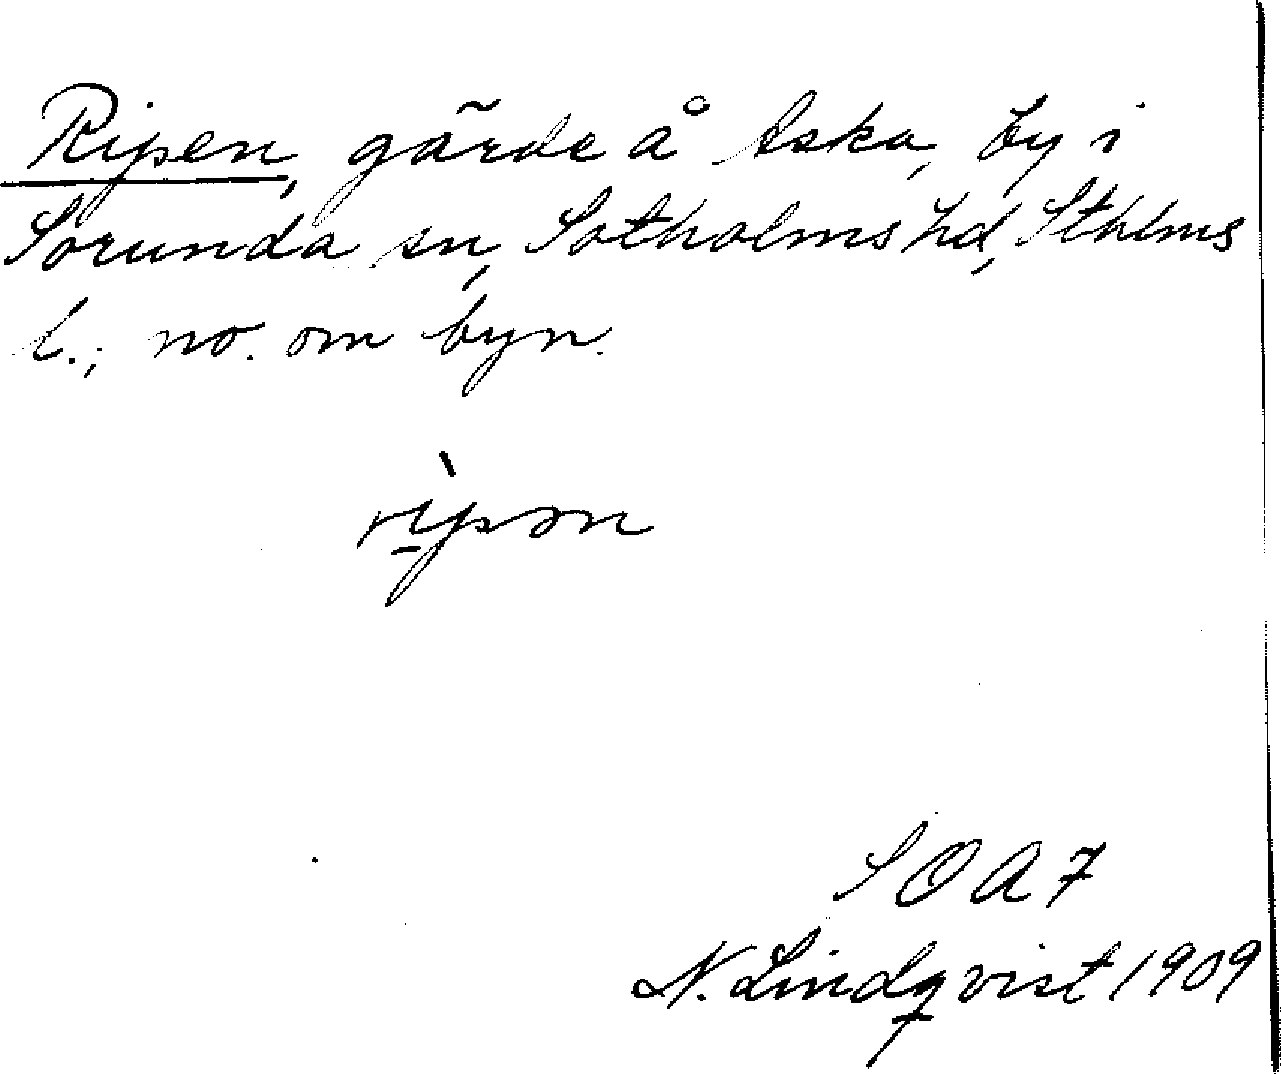 Ripen, gärde å Åska, by i
Sorunda sn, Sotholms hd, Sthlms
l.; no. om byn.
rìpən
SOA 7
N. Lindqvist 1909